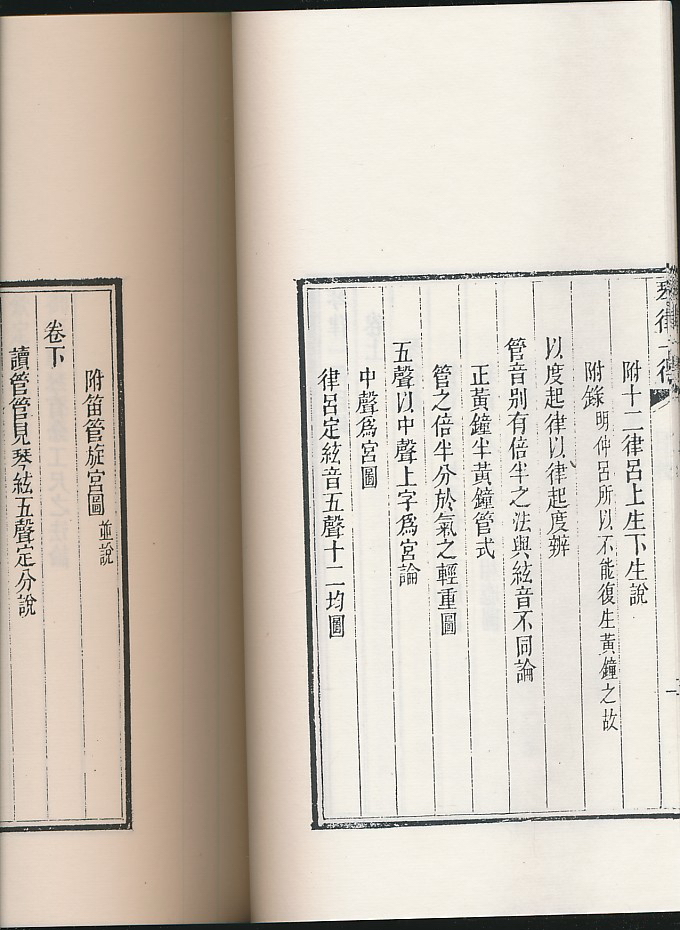 琴律一得
附十二律呂上生下生說
附錄明仲呂所以不能復生黃鐘之故
以度起律以律起度辨
管音別有倍半之法與絃音不同論
正黃鐘半黃鐘管式
管之倍半分於氣之輕重圖
五聲以中聲上字爲宮論
中聲爲宮圖
律呂定絃音五聲十二均圖
附笛管旋宮圖並說
卷下
讀管管見琴絃五聲定分說